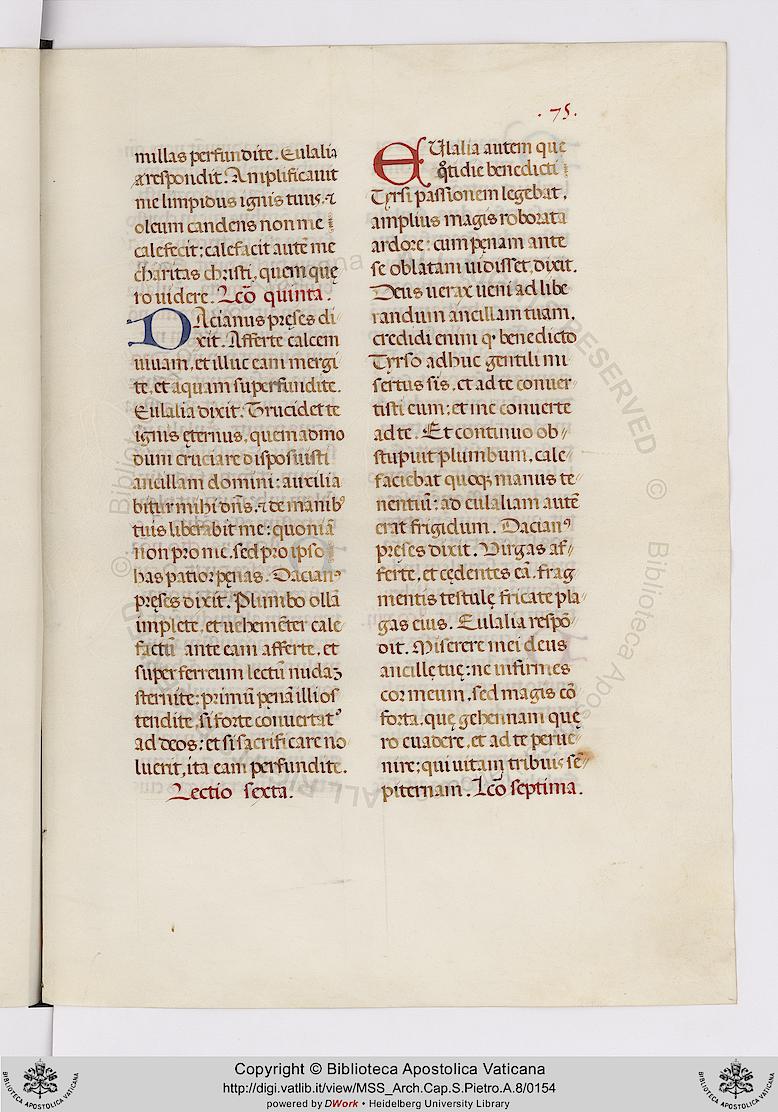 .75.
millas perfundite. Eulalia
respondit. Amplificauit
me limpidus ignis tuus: &
oleum candens non me
calefecit: calefacit autē me
charitas christi, quem quę
ro uidere. Lcō quinta.
DAcianus pręses di
xit. Afferte calcem
uiuam, et illuc eam mergi
te, et aquam superfundite.
Eulalia dixit. Trucidet te
ignis ęternus, quem admo
dum cruciare disposuisti
ancillam domini: auxilia
bitur mihi dñs, & de manibꝰ
tuis liberabit me: quoniā
non pro me, sed pro ipso
has patior pęnas. Dacianꝰ
pręses dixit. Plumbo ollā
implete, et uehemēter cale
factū ante eam afferte, et
super ferreum lectū nudaʒ
sternite: primū pęnā illi os
tendite, si forte conuertatꝰ
ad deos: et si sacrificare no
luerit, ita eam perfundite.
Lectio sexta.
EUlalia autem que
q̄tidie benedicti
Tyrsi passionem legebat,
amplius magis roborata
ardore: cum pęnam ante
se oblatam uidisset, dixit.
Deus uerax ueni ad libe
randum ancillam tuam,
credidi enim qꝫ benedicto
Tyrso adhuc gentili mi
sertus sis, et ad te conuer
tisti eum: et me conuerte
ad te. Et continuo ob
stupuit plumbum, cale
faciebat quoqꝫ manus te
nentiū: ad eulaliam autē
erat frigidum. Dacianꝰ
pręses dixit. Virgas af
ferte, et cędentes eā, frag
mentis testulę fricate pla
gas eius. Eulalia respō
dit. Miserere mei deus
ancillę tuę: ne infirmes
cor meum, sed magis cō
forta, quę gehennam quę
ro euadere, et ad te perue
nire; qui uitam tribuis sē
piternam. Lcō septima.
Copyright © Biblioteca Apostolica Vaticana
http://digi.vatlib.it/view/MSS_Arch.Cap.S.Pietro.A.8/0154
powered by DWork • Heidelberg University Library
BIBLIOTECA APOSTOLICA VATICANA
BIBLIOTECA APOSTOLICA VATICANA